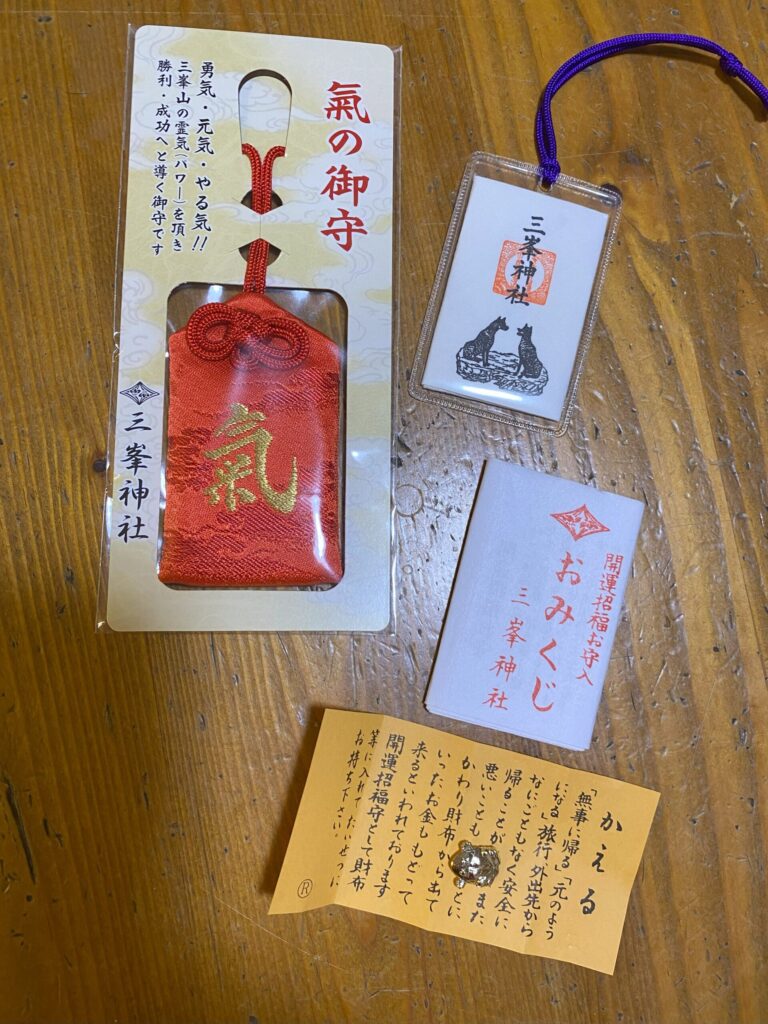 氣の御守
勇気・元気・やる気!!
三峯山の霊気(パワー)を頂き
勝利・成功へと導く御守です
三峯神社
氣
三峯神社
開運招福お守入
おみくじ
三峯神社
かえる
「無事に帰る」「元のよう
になる」旅行、外出先から
なにごともなく安全に
帰ることが
また
悪いことも
とに
かわり財布から出て
いったお金ももどって
来るといわれております
開運招福守として財布
等に入れてたいせつに
お持ち下さい。
Ⓡ